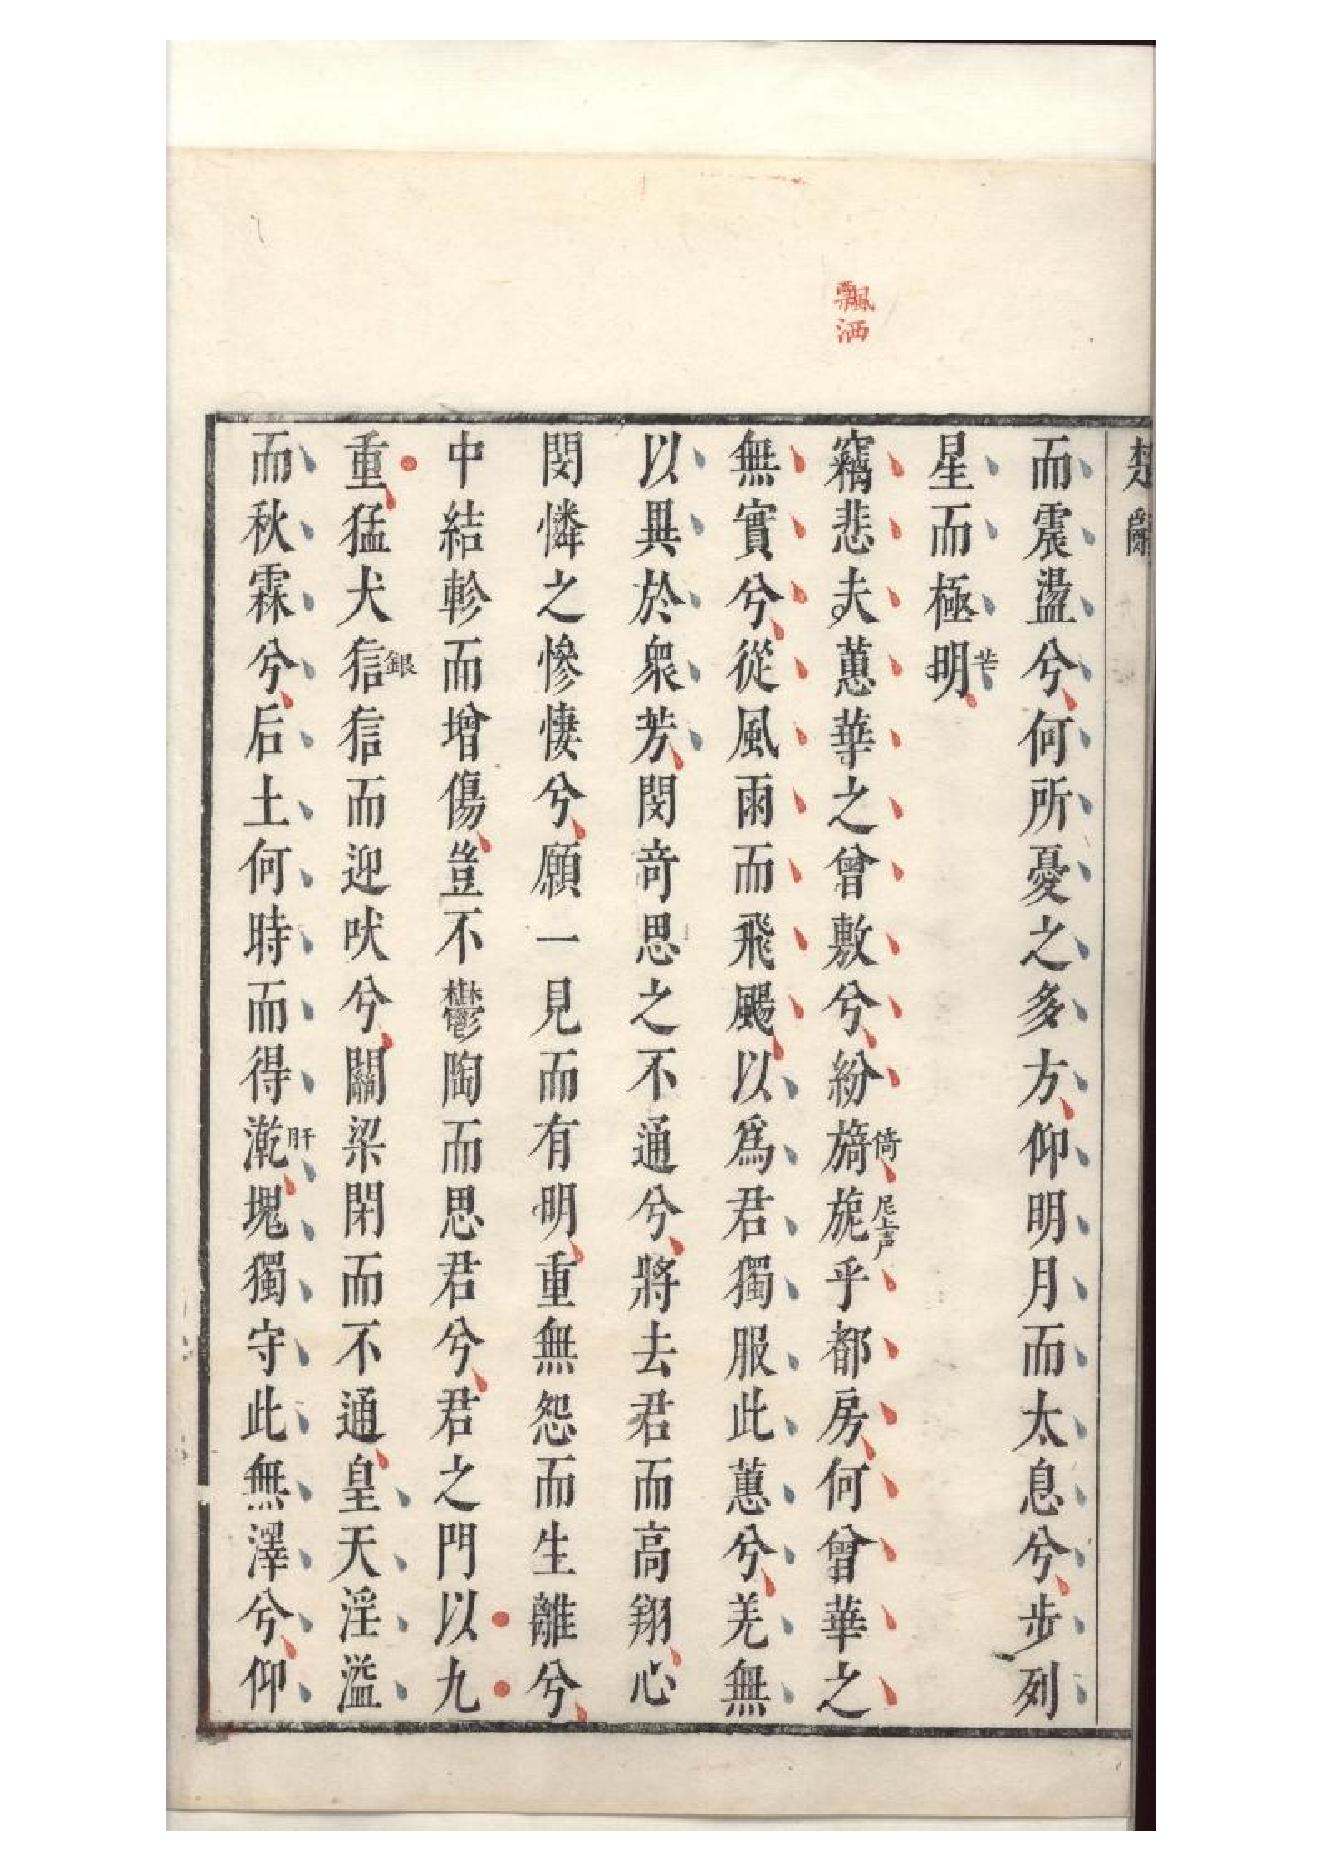 楚辭
而震盪兮何所憂之多方仰明月而太息兮步列
星而極明
芒
飄洒
竊悲夫蕙華之曾敷兮紛旖旎乎都房何曾華之
倚
尼上声
無實兮從風雨而飛颺以爲君獨服此蕙兮羌無
以異於衆芳閔奇思之不通兮將去君而高翔心
閔憐之慘悽兮願一見而有明重無怨而生離兮
中結軫而增傷豈不鬱陶而思君兮君之門以九
重猛犬狺狺而迎吠兮關梁閉而不通皇天淫溢
銀
而秋霖兮后土何時而得漧塊獨守此無澤兮仰
肝